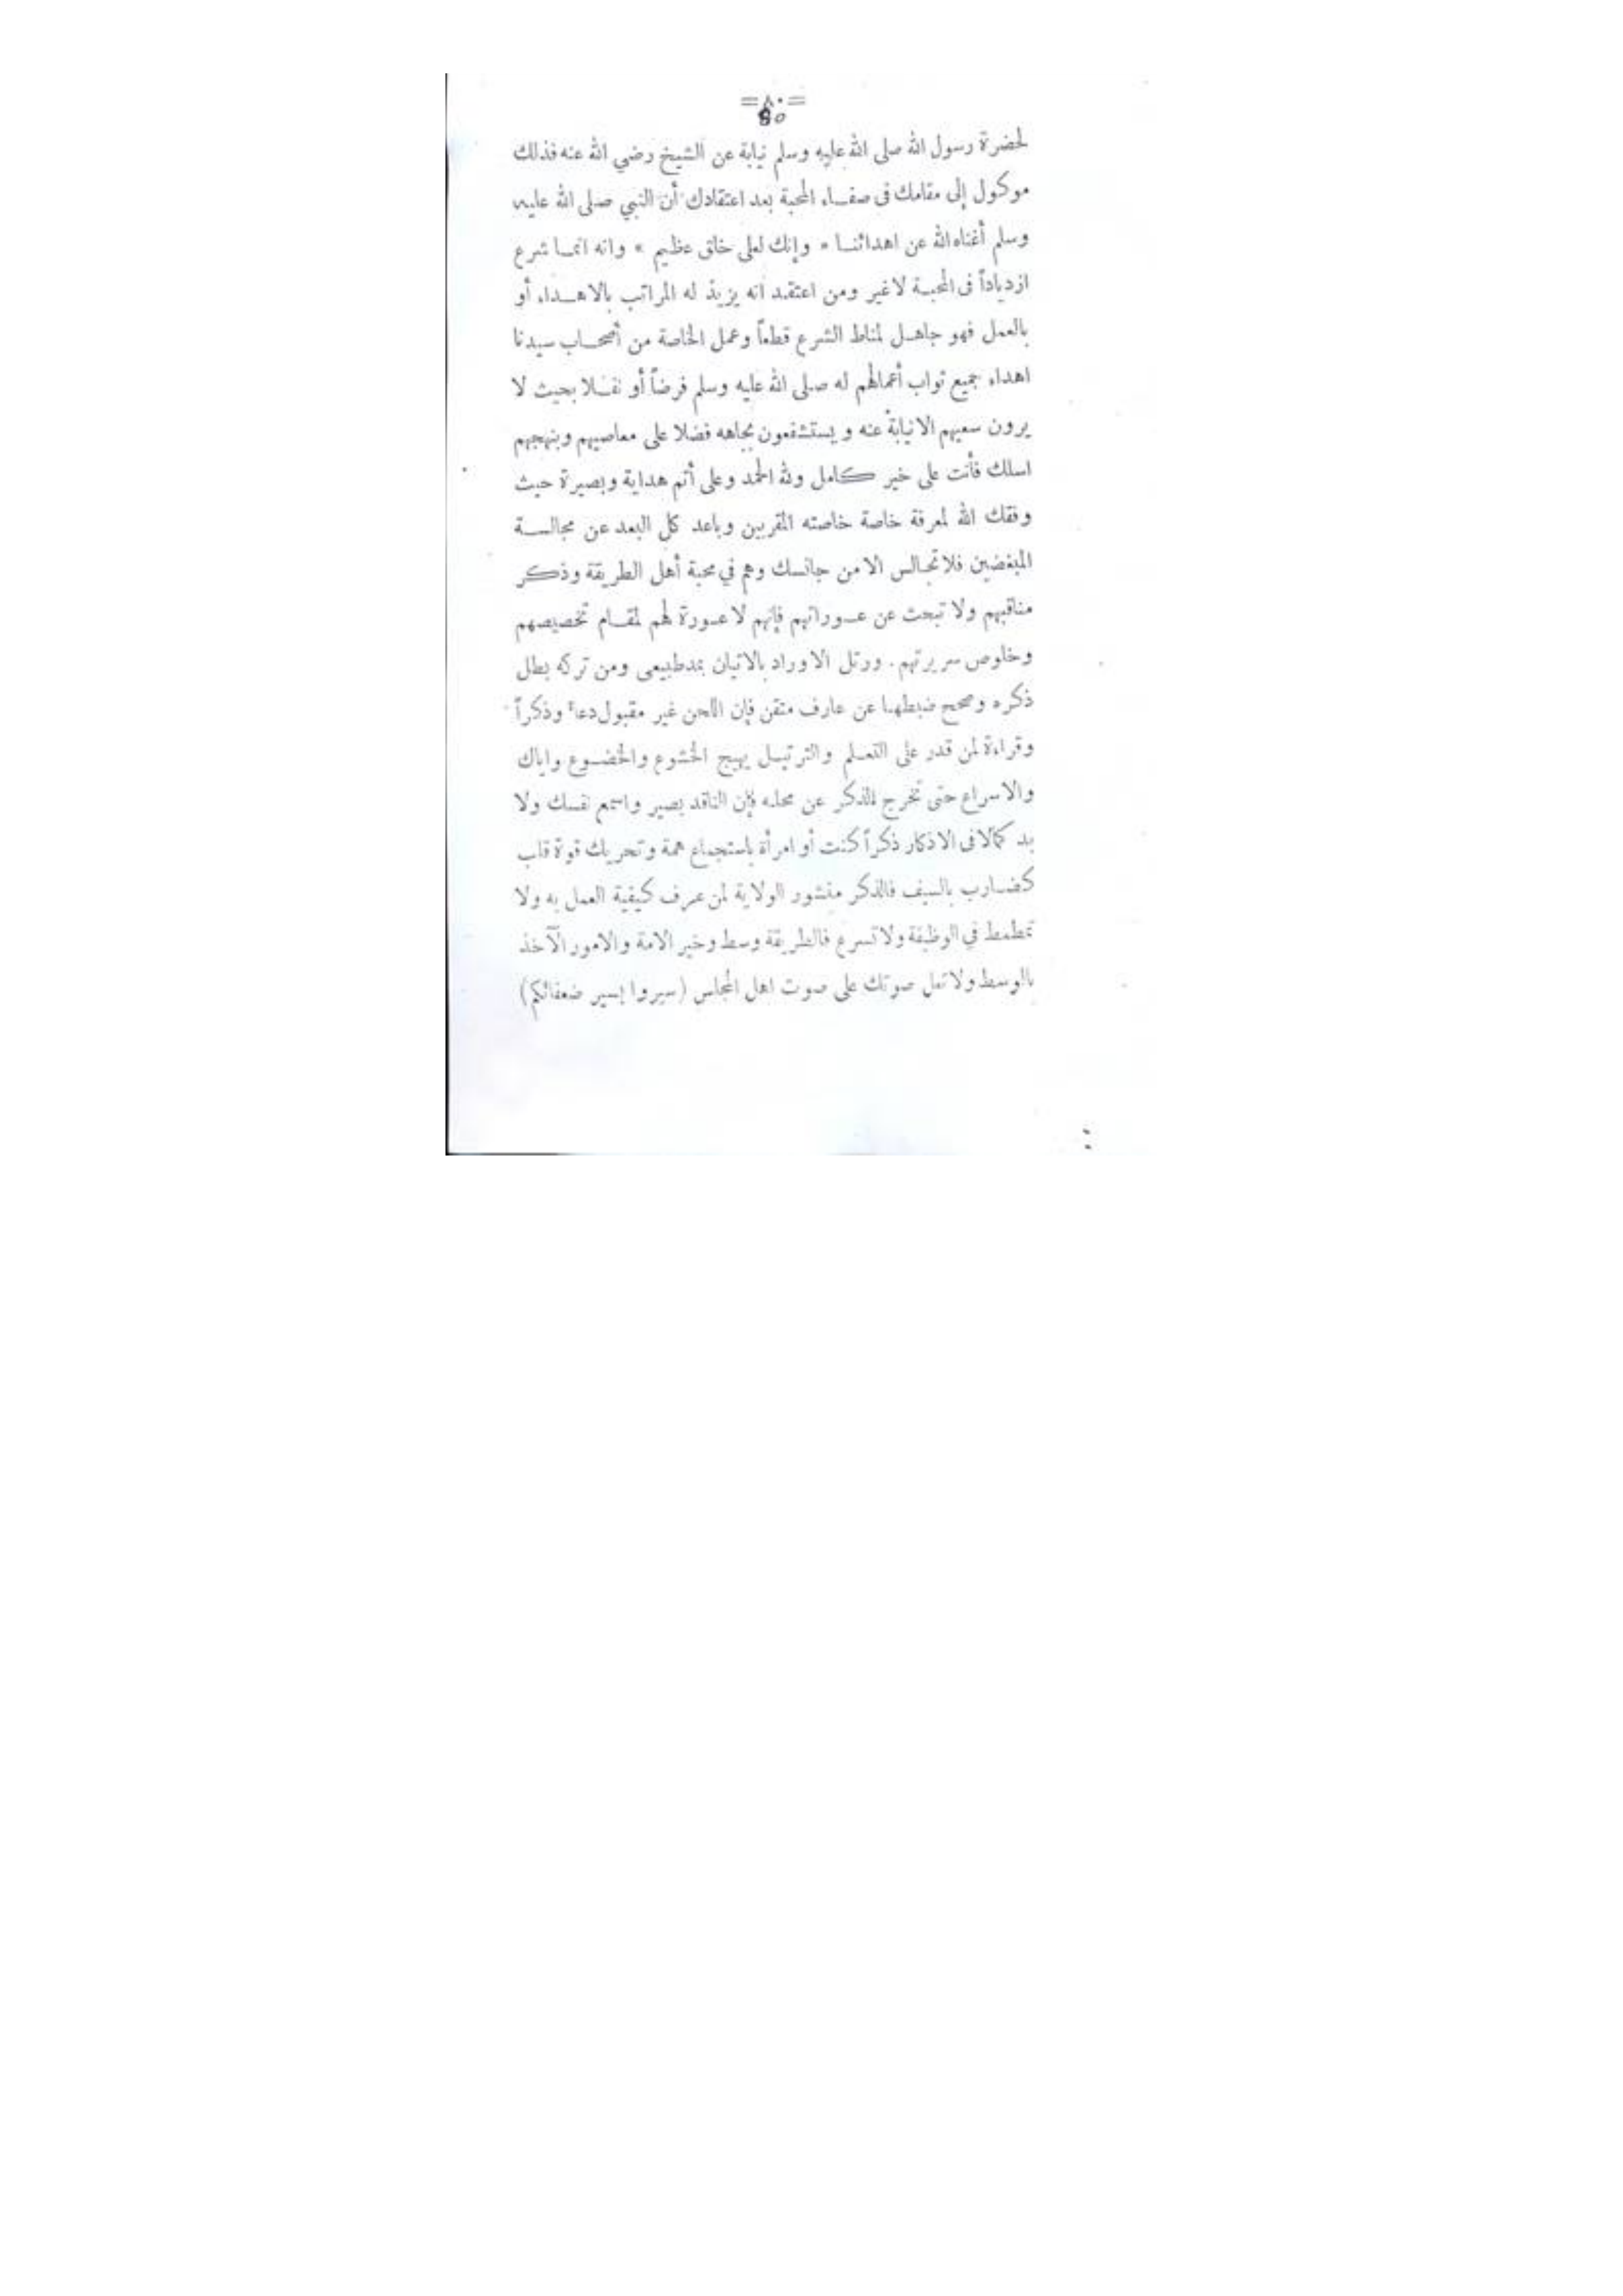 =٨٠=
80
لحضرة رسول الله صلى الله عليه وسلم نيابة عن الشيخ رضي الله عنه فذلك
موكول إلى مقامك فى صفاء المحبة بعد اعتقادك أن النبي صلى الله عليه
وسلم أغناه الله عن اهدائنا « وإنك لعلى خلق عظيم » وانه انما شرع
ازدياداً فى المحبة لاغير ومن اعتقد انه يزيد له المراتب بالاهداء أو
بالعمل فهو جاهل لمناط الشرع قطعاً وعمل الخاصة من أصحاب سيدنا
اهداء جميع ثواب أعمالهم له صلى الله عليه وسلم فرضاً أو نفلا بحيث لا
يرون سعيهم الا نيابة عنه ويستشفعون بجاهه فضلا على معاصيهم وبنهجهم
اسلك فأنت على خير كامل ولله الحمد وعلى أتم هداية وبصيرة حيث
وفقك الله لمعرفة خاصة خاصته المقربين وباعد كل البعد عن مجالسة
المبغضين فلا تجالس الا من جانسك وهم في محبة أهل الطريقة وذكر
مناقبهم ولا تبحث عن عوراتهم فإنهم لا عورة لهم لمقام تخصيصهم
وخلوص سريرتهم . ورتل الاوراد بالاتيان بمد طبيعى ومن تركه بطل
ذكره وصحح ضبطها عن عارف متقن فإن اللحن غير مقبول دعاءً وذكراً
وقراءة لمن قدر على التعلم والترتيل يهيج الخشوع والخضوع واياك
والاسراع حتى تخرج الذكر عن محله فإن الناقد بصير واسمع نفسك ولا
بد كمالا فى الاذكار ذكراً كنت أو امرأة باستجماع همة وتحريك قوة قلب
كضارب بالسيف فالذكر منشور الولاية لمن عرف كيفية العمل به ولا
تمطمط في الوظيفة ولا تسرع فالطريقة وسط وخير الامة والامور الآخذ
بالوسط ولا تعل صوتك على صوت اهل المجلس (سيروا بسير ضعفائكم)